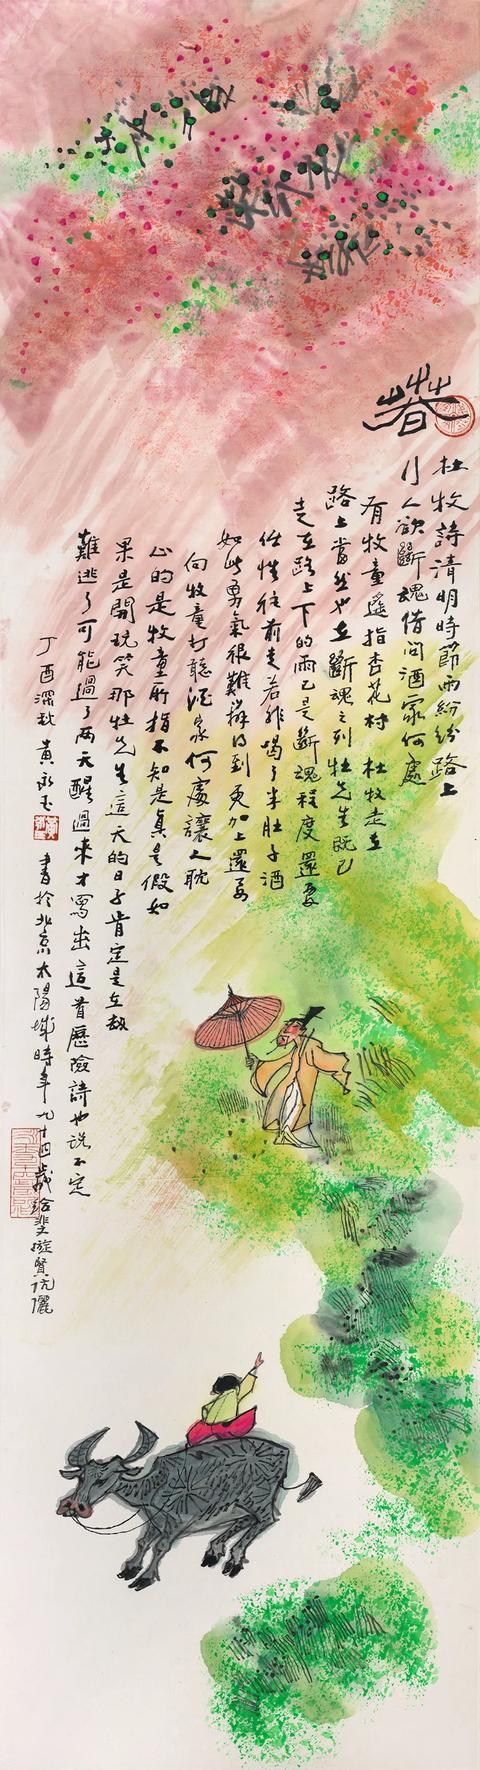 春
杜牧詩清明時節雨紛紛路上
行人欲斷魂借問酒家何處
有牧童遥指杏花村 杜牧走在
路上當然也在斷魂之列杜先生既已
走在路上下的雨已是斷魂程度還要
任性往前走若非喝了半肚子酒
如此勇氣很難辦得到更加上還要
向牧童打聽酒家何處讓人耽
心的是牧童所指不知是真是假如
果是開玩笑那杜先生這天的日子肯定是在劫
難逃了可能過了两天醒過來才寫出這首歷險詩也說不定
丁酉深秋 黄永玉 書於北京太陽城時年九十四歲給斐漩賢伉儷